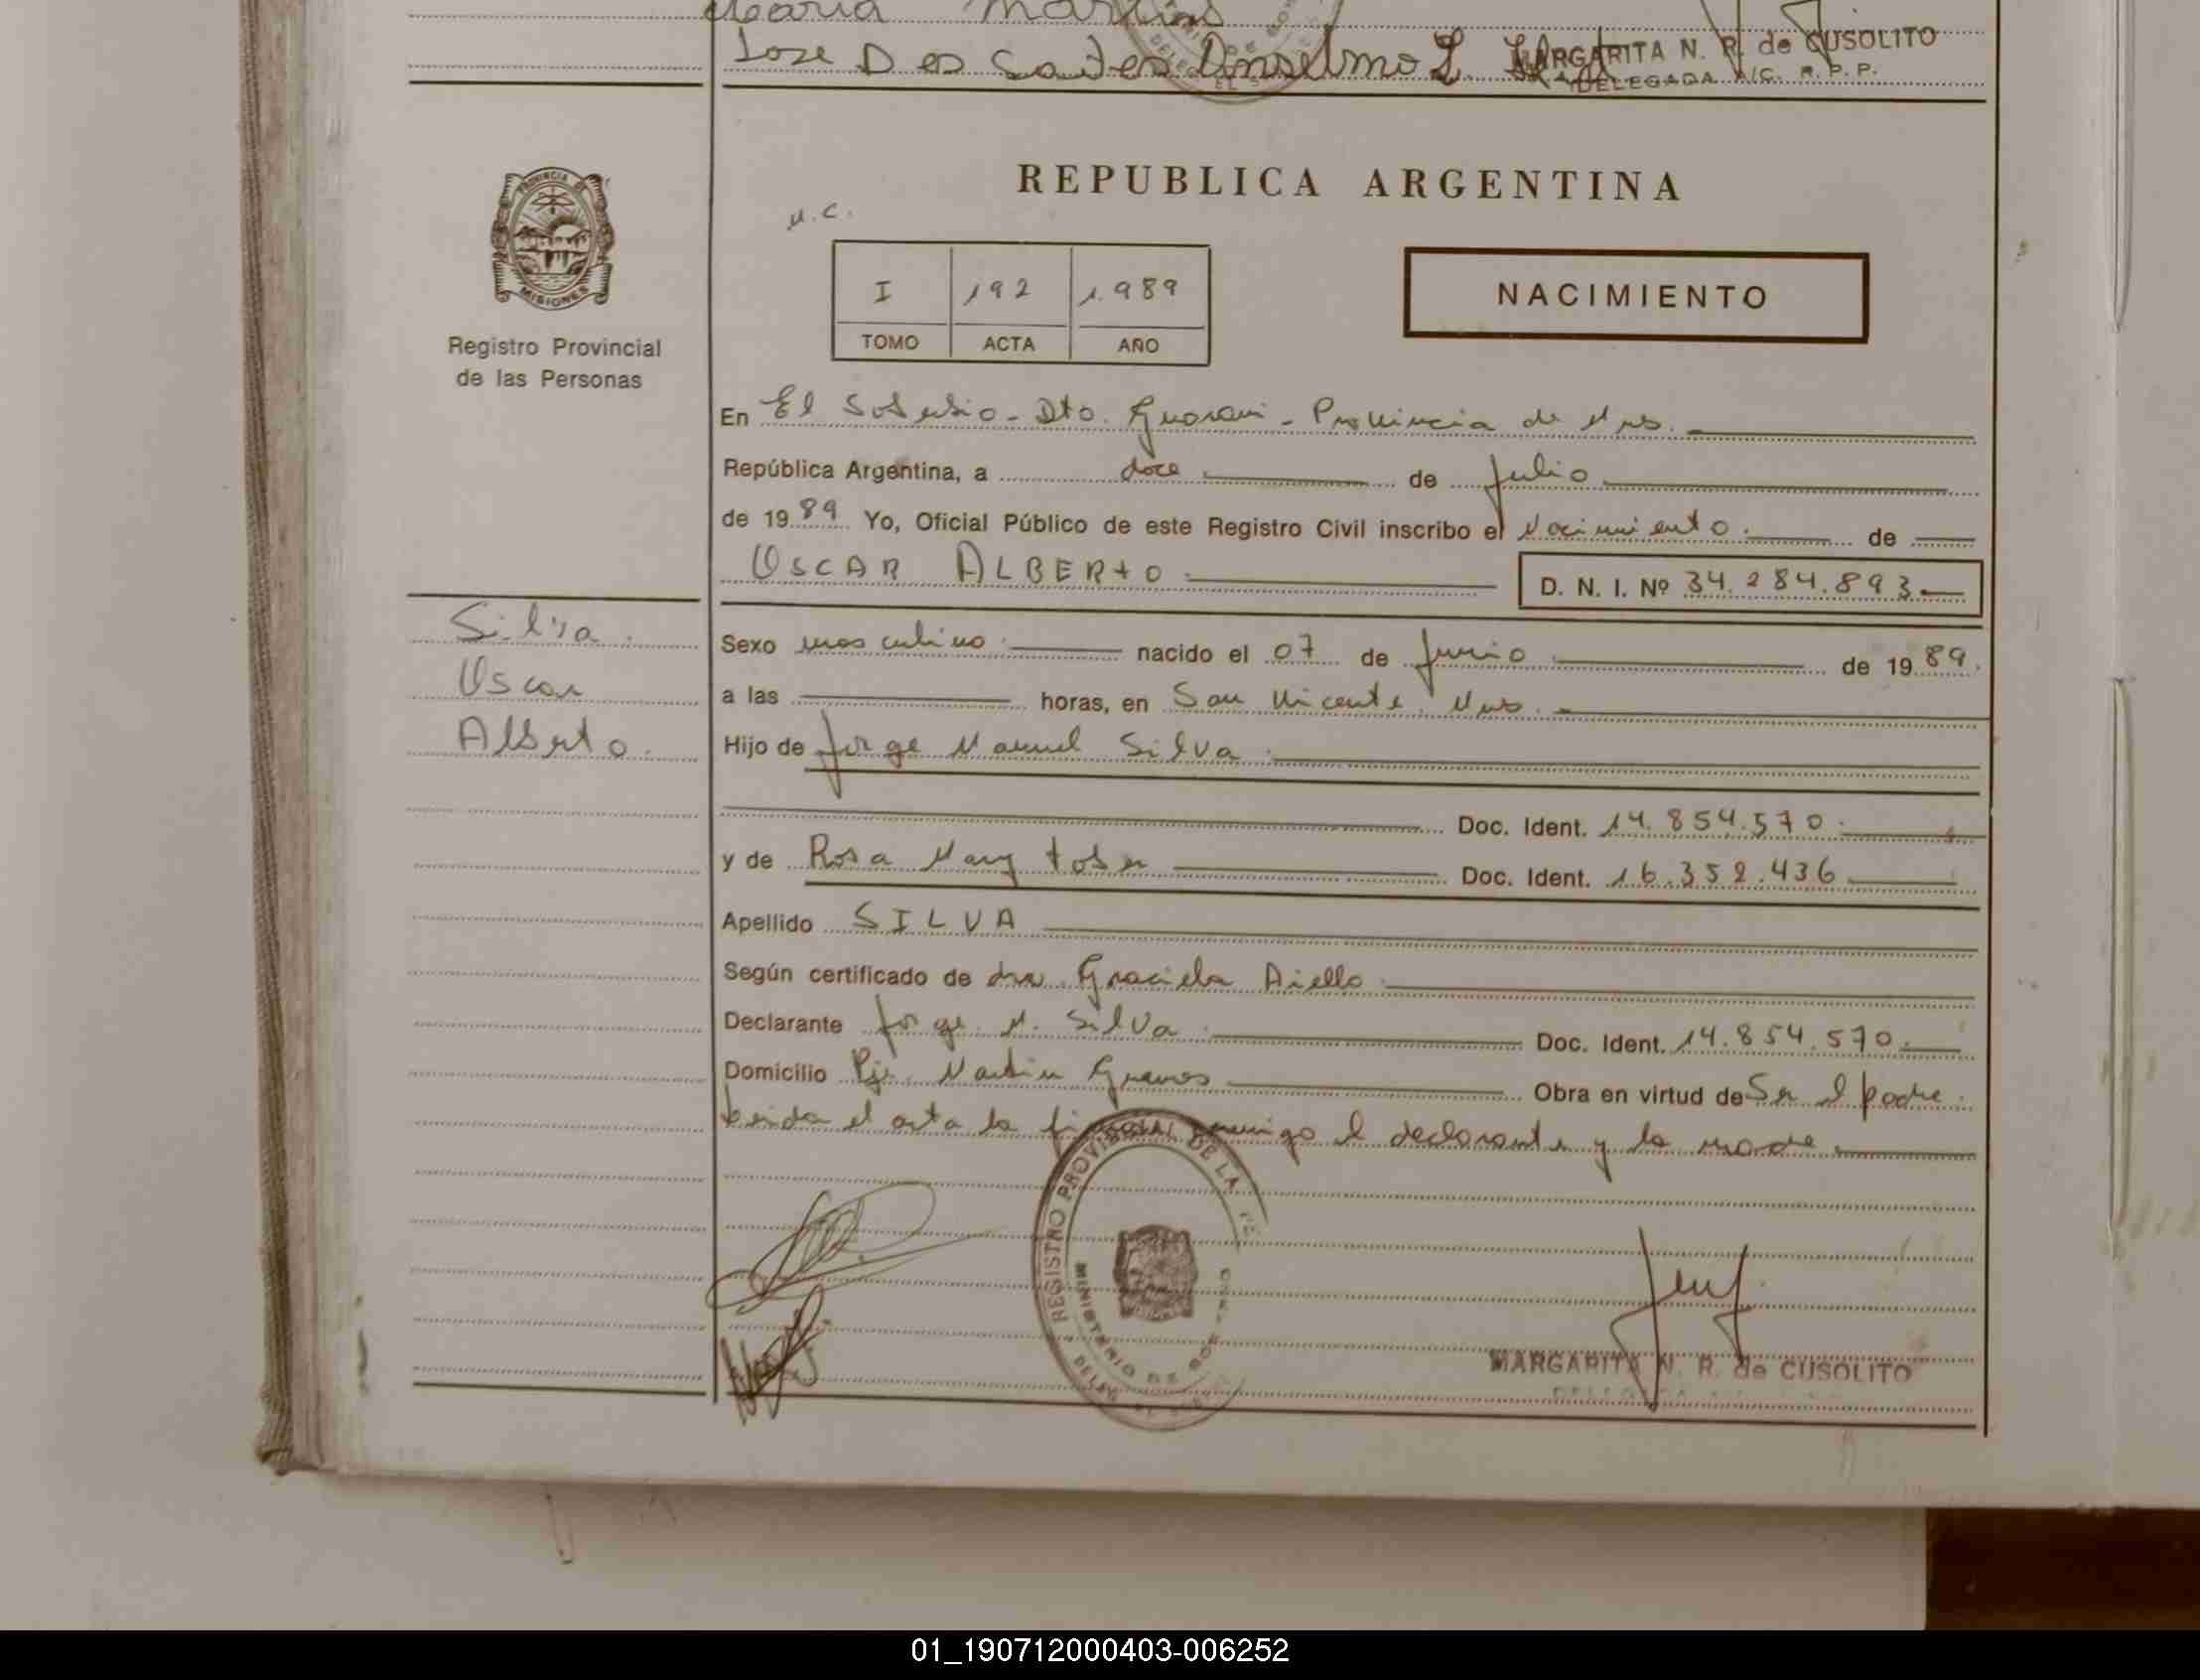 Maria Martins
Jose Dos Santos Anselmo L.
MARGARITA N. R. de CUSOLITO
DELEGADA A/C. R. P. P.
REPUBLICA ARGENTINA
PROVINCIA DE
MISIONES
Registro Provincial
de las Personas
I 192 1.989
TOMO ACTA AÑO
NACIMIENTO
En El Soberbio - Dto. Guarani - Provincia de Mnes.
República Argentina, a doce de Julio
de 1989 Yo, Oficial Público de este Registro Civil inscribo el Nacimiento. de
OSCAR ALBERTO
D. N. I. Nº 34.284.893
Silva.
Oscar
Alberto.
Sexo masculino. nacido el 07 de Junio de 1989.
a las horas, en San Vicente. Mnes.
Hijo de Jorge Manuel Silva.
Doc. Ident. 14.854.570.
y de Rosa Mary Doc. Ident. 16.352.436
Apellido SILVA
Según certificado de dra Graciela Aiello.
Declarante Jorge. M. Silva. Doc. Ident. 14.854.570.
Domicilio Pje. Martin Guemes Obra en virtud de Ser el padre.
Leida el acta la conmigo el declarante y la madre
REGISTRO PROVINCIAL DE LA
MINISTERIO DE GOBIERNO
MARGARITA N. R. de CUSOLITO
01_190712000403-006252